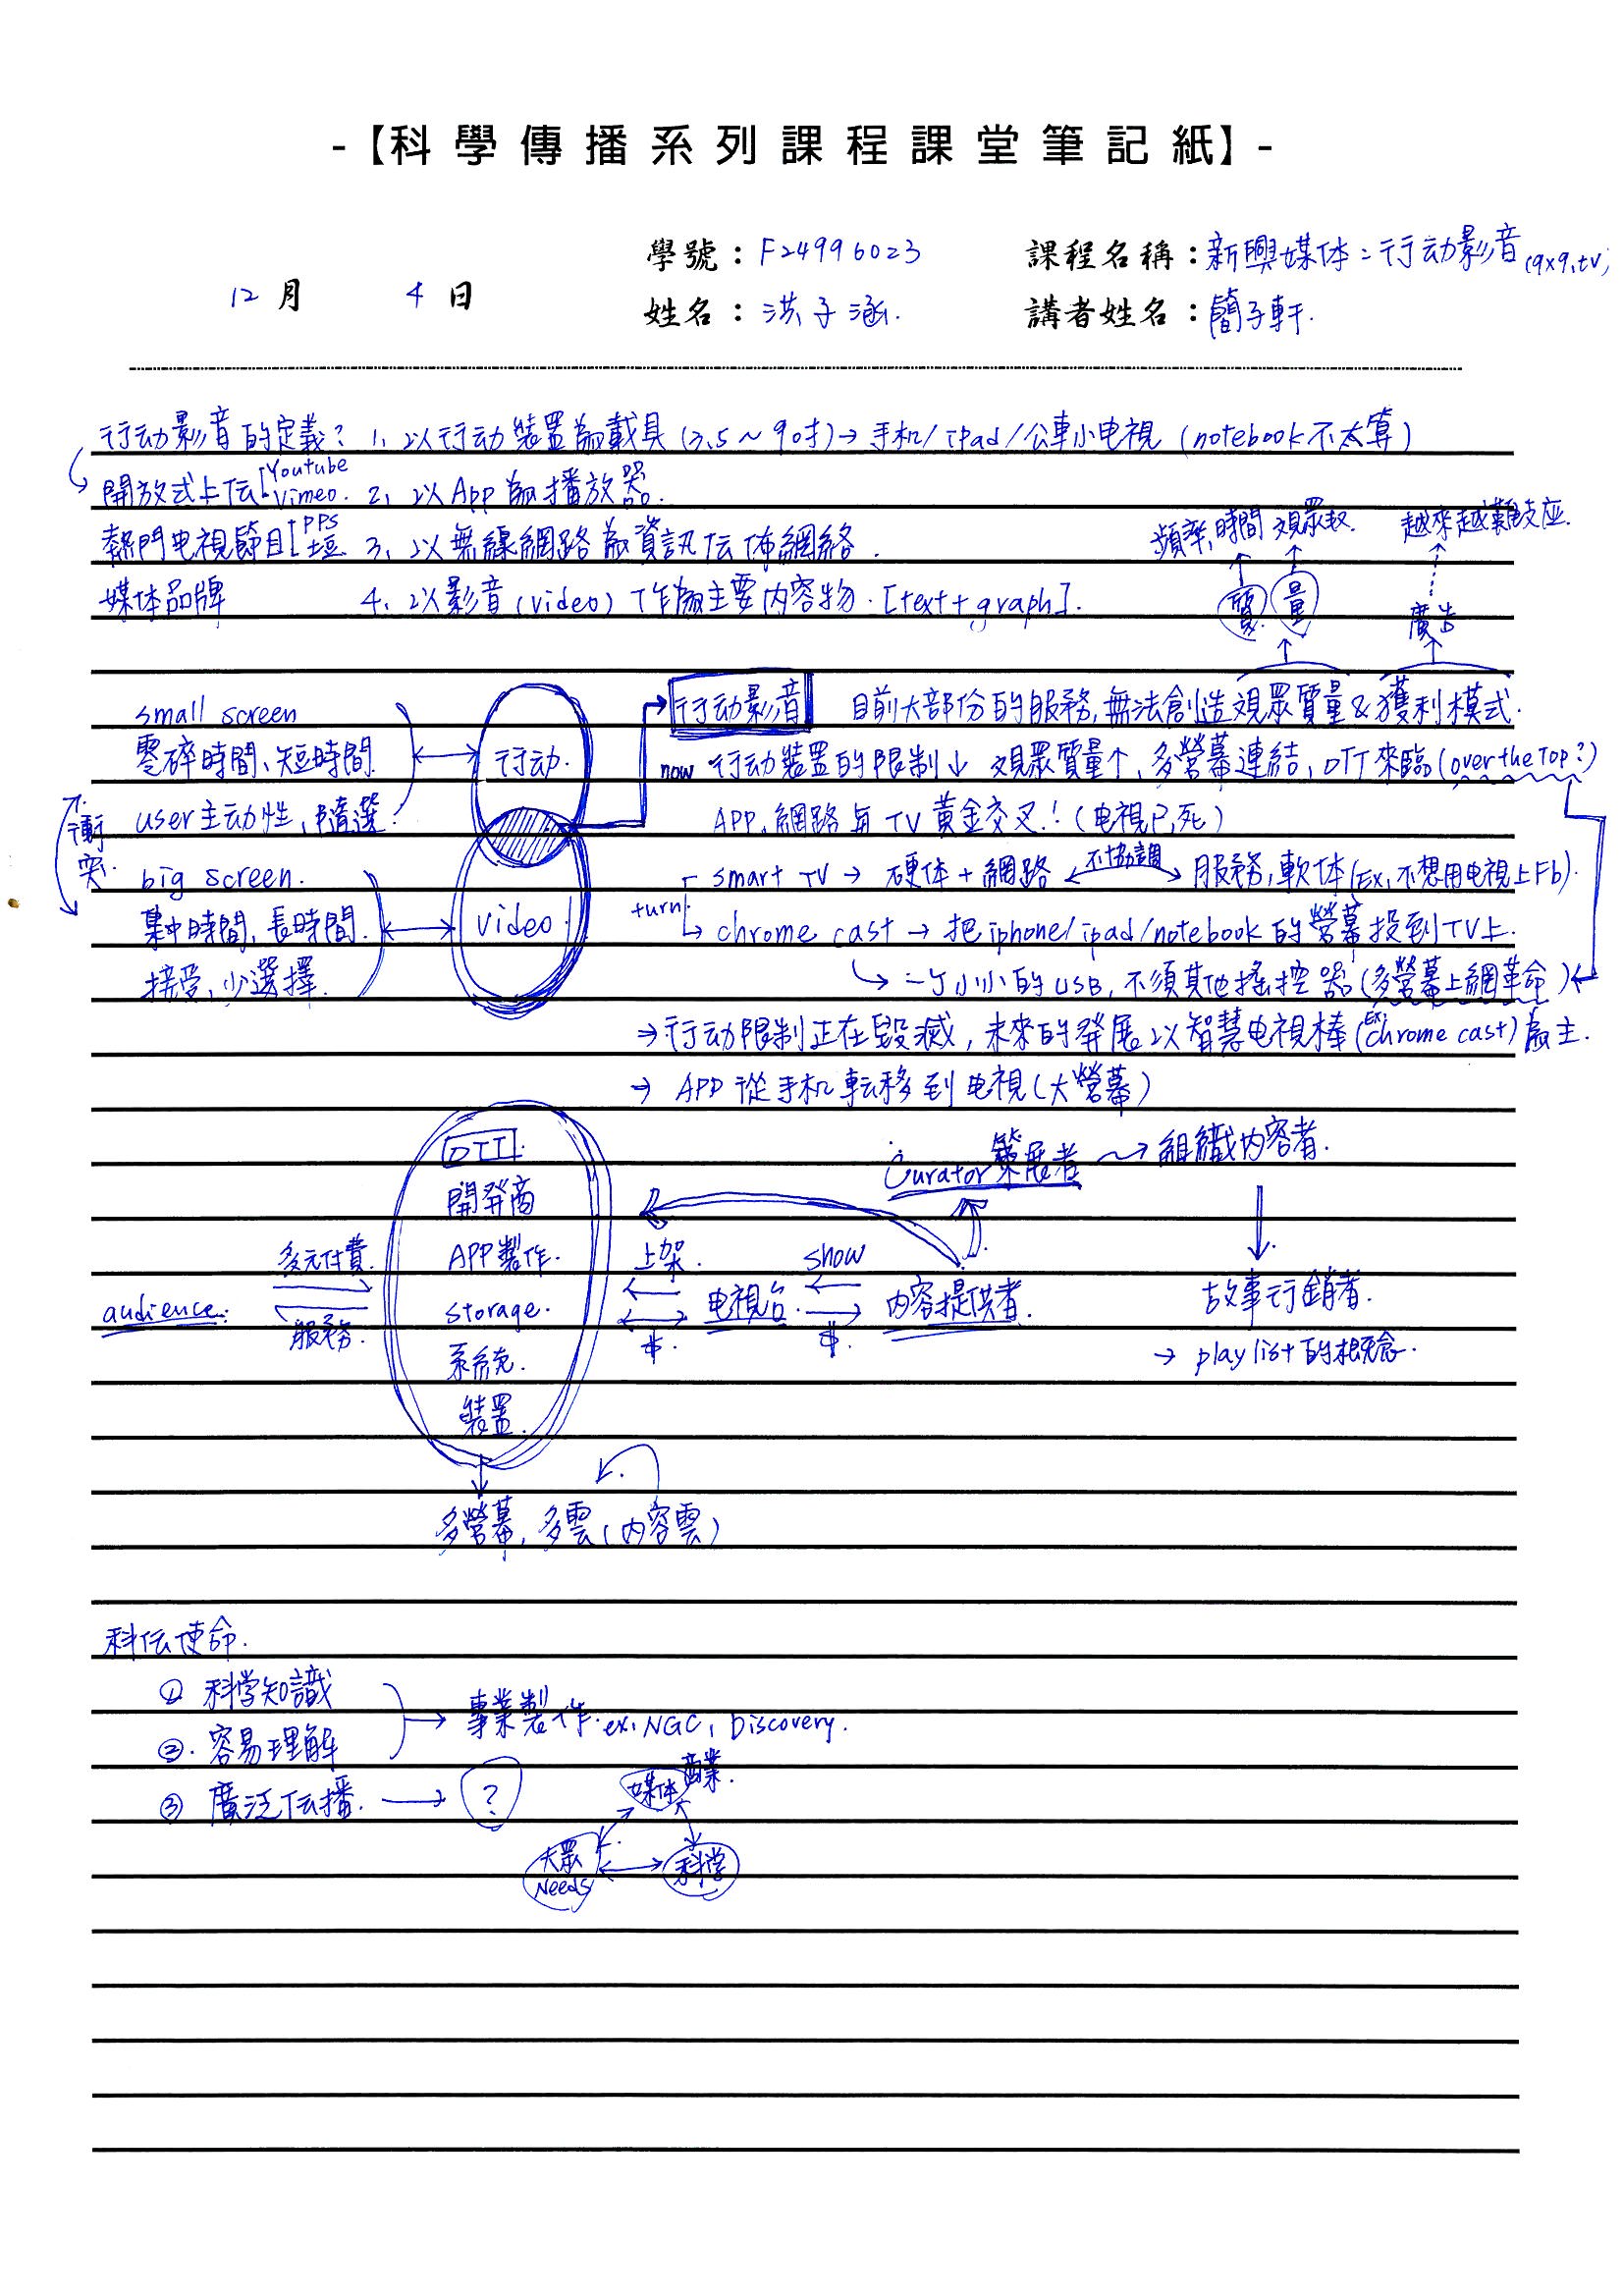 -【科學傳播系列課程課堂筆記紙】-
學號：F24996023 課程名稱：新興媒体：行动影音(9x9.tv)
12月 4日 姓名：洪子涵. 講者姓名：簡子軒.
行动影音的定義? 1. 以行动裝置為載具(3.5~9吋)→手机/ipad/公車小电視(notebook不太算)
開放式上伝[Youtube Vimeo. 2. 以App為播放器.
熱門电視節目[PPS 土豆 3. 以無線網路為資訊伝佈網絡.
媒体品牌 4. 以影音(video)作為主要內容物.[text+graph].
頻率,時間 观眾数. 越來越難支应.
質. 量 廣告
small screen 行动影音 目前大部份的服務,無法創造观眾質量&獲利模式.
零碎時間、短時間. 行动. now 行动裝置的限制↓ 观眾質量↑,多螢幕連結,OTT來臨(over the Top?)
user主动性,隨選. APP.網路与TV黃金交叉!(电視已死)
衝突.
big screen. smart TV → 硬体+網路 ←不協調→ 服務,軟体(Ex.不想用电視上Fb).
集中時間,長時間. video turn chrome cast → 把iphone/ipad/notebook的螢幕投到TV上.
接受,少選擇. 小小的USB,不須其他搖控器(多螢幕上網革命)
→行动限制正在毀滅,未來的發展以智慧电視棒(Ex:Chrome cast)為主.
→ APP從手机転移到电視(大螢幕)
OTT. Curator策展者 → 組織內容者.
開発商
多元付費. APP製作. 上架. show
audience: storage. $ 电視台. $ 內容提供者. 故事行銷者.
服務. 系統. → playlist的概念.
裝置.
多螢幕,多雲(內容雲)
科伝使命.
① 科学知識 → 專業製作.ex.NGC, Discovery.
②. 容易理解
③ 廣泛伝播. → ?
媒体 商業.
大眾 Needs 科学